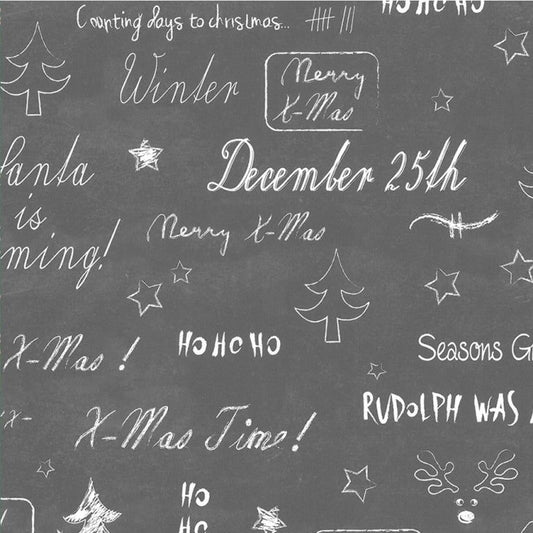 HO HO HO
Counting days to christmas...
Winter
Merry
X-Mas
Santa
is
ming!
December 25th
Merry X-Mas
X-Mas !
HO HO HO
Seasons G
RUDOLPH WAS
X-
X-Mas Time!
HO
HO